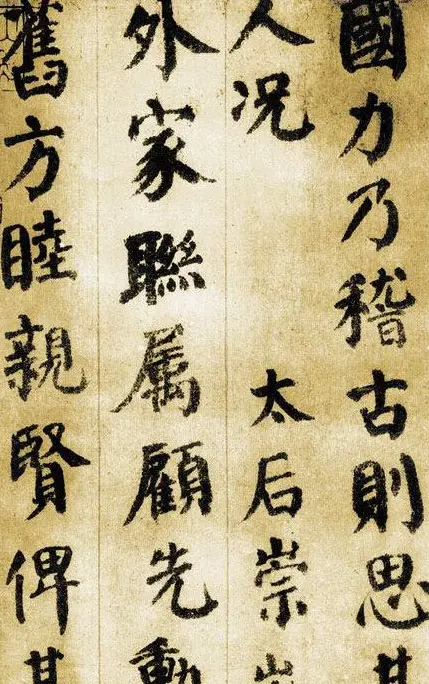 國力乃稽古則思其
人况 太后崇
外家聯属顧先動
舊方睦親賢俾其